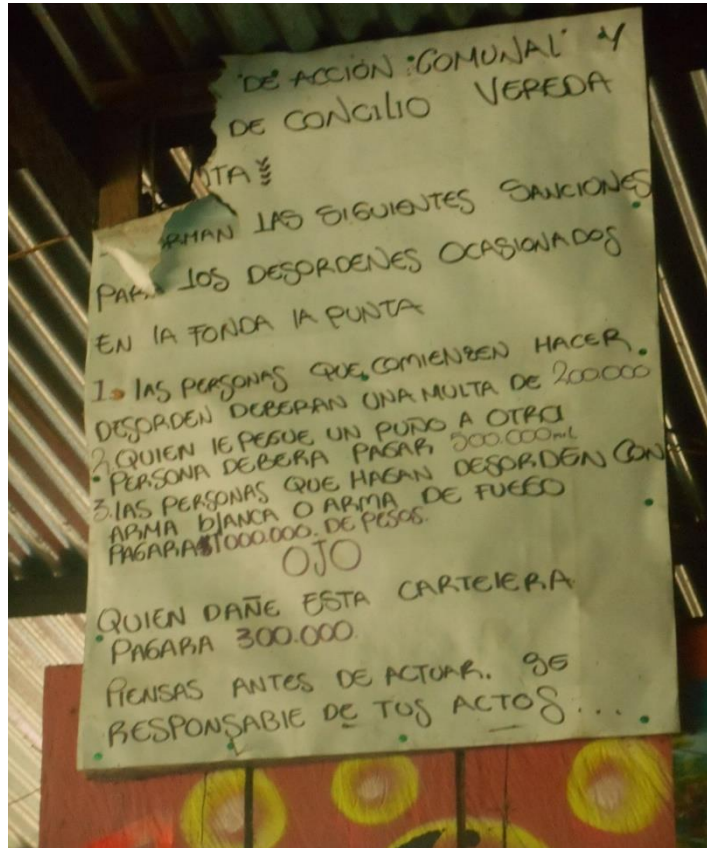 DE ACCIÓN COMUNAL Y
DE CONCILIO VEREDA
NTA
RMAN LAS SIGUIENTES SANCIONES
PARA LOS DESORDENES OCASIONADOS
EN LA FONDA LA PUNTA
1. LAS PERSONAS QUE COMIENSEN HACER
DESORDEN DEBERAN UNA MULTA DE 200.000
2. QUIEN LE PEGUE UN PUÑO A OTRA
PERSONA DEBERA PAGAR 500.000 mL
3. LAS PERSONAS QUE HAGAN DESORDEN CON
ARMA blANCA O ARMA DE FUEGO
PAGARA $1000.000. DE PESOS.
OJO
QUIEN DAÑE ESTA CARTELERA
PAGARA 300.000.
PIENSAS ANTES DE ACTUAR. SE
RESPONSABLE DE TUS ACTOS...